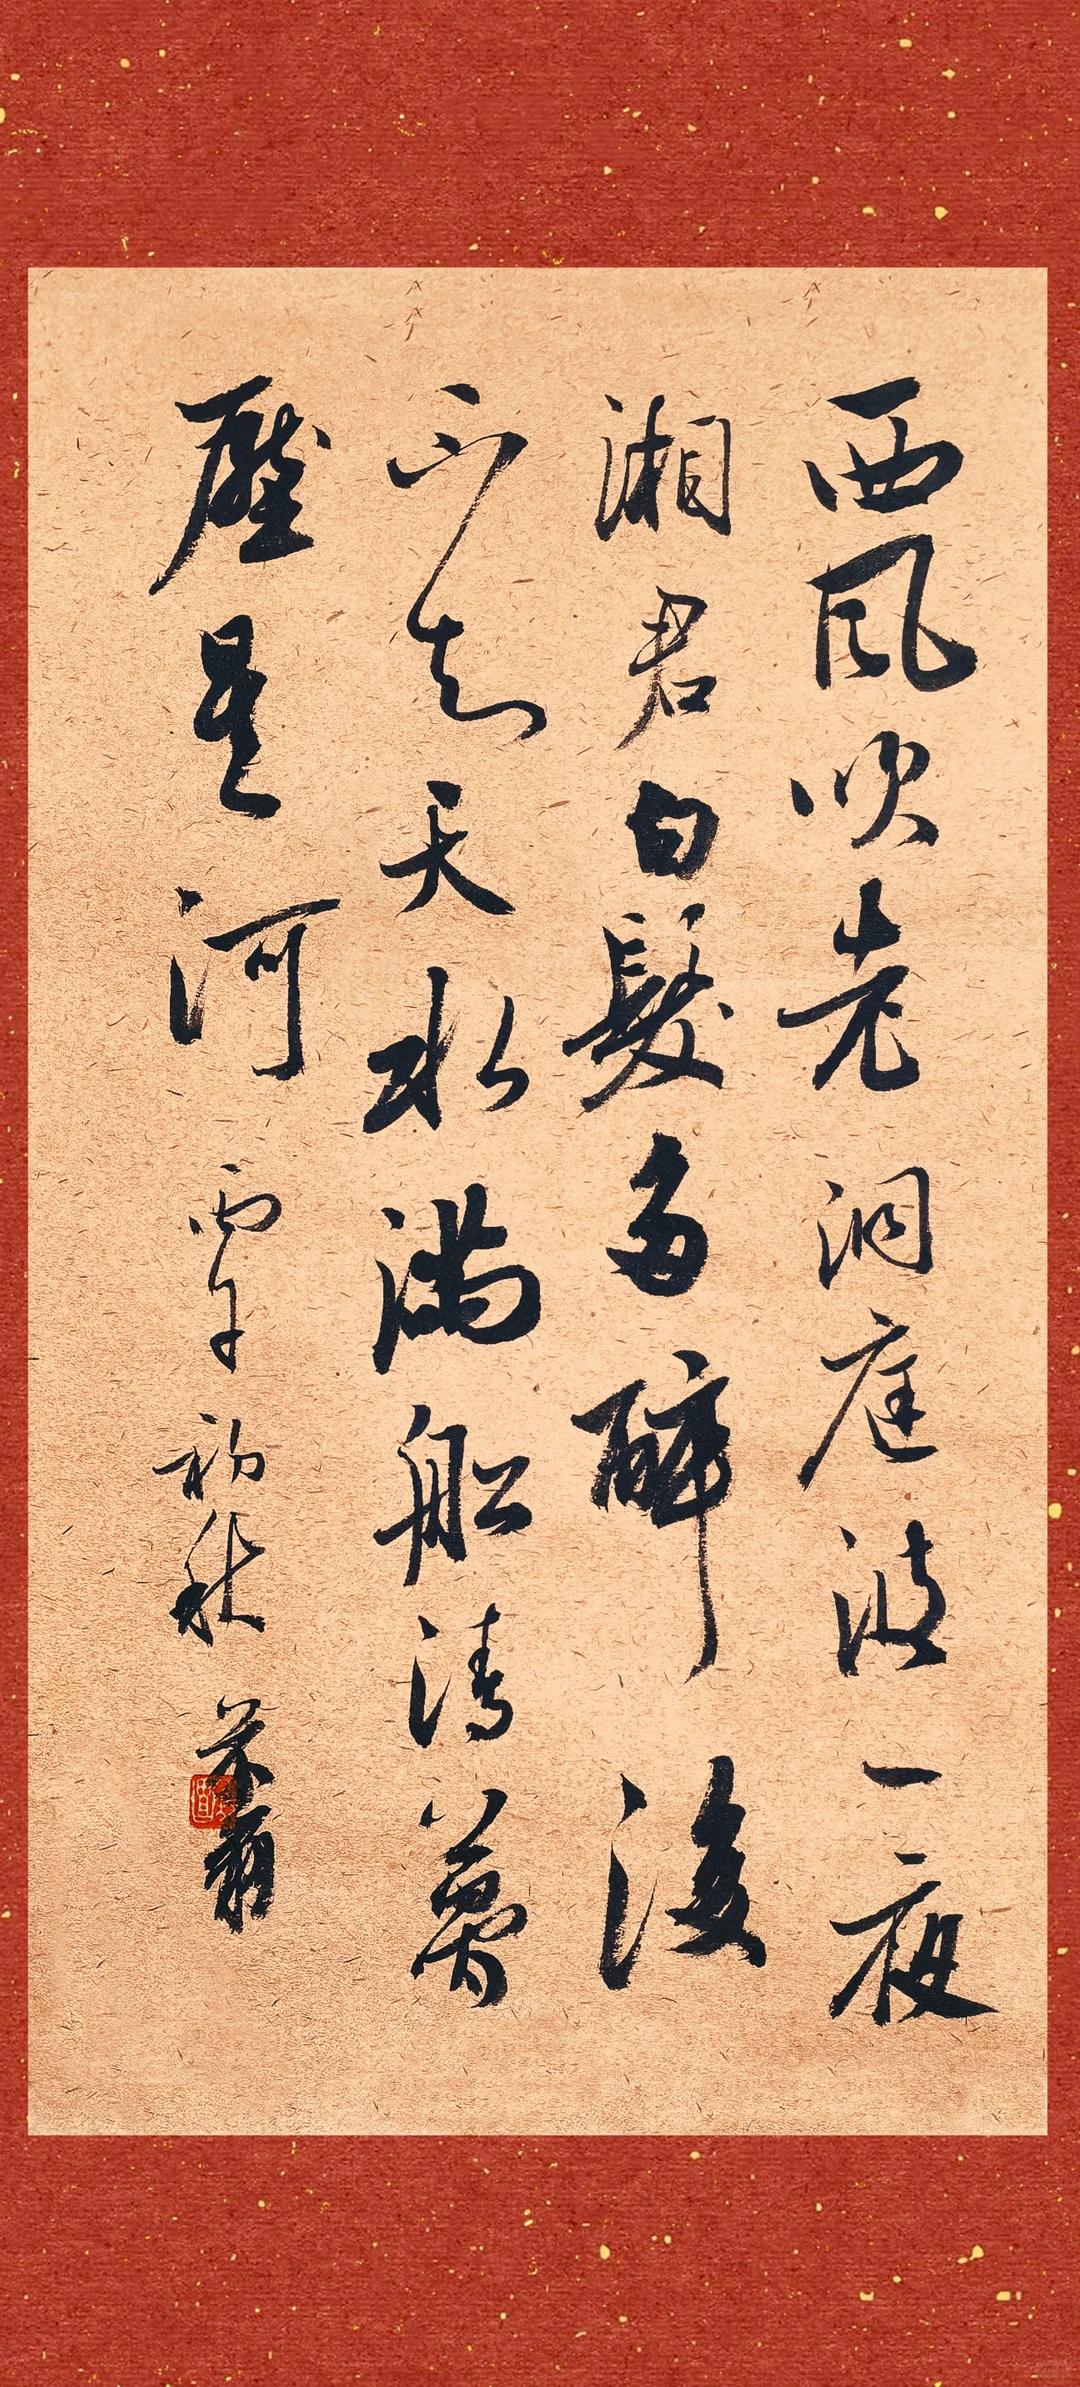 西風吹老洞庭波一夜
湘君白髮多醉後
不知天水滿船清夢
壓星河 丙午初秋